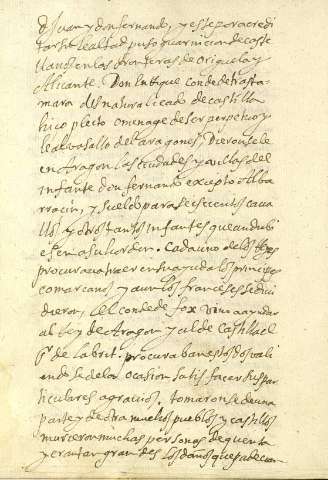 Dn Juan y don fernando, y este por acredi
tar su lealtad puso guarnicion de caste
llanos en las fronteras de origuela y
Alicante. Don Enrique conde de trasta
mara desnaturalicado de castilla
hico pleito omenage de ser perpetuo y
leal vasallo del aragones, Dieronsele
en Aragon las ciudades y villas del
infante don fernando excepto Alba
rracin, y sueldo para seiscientos cava
llos y otros tantos infantes que andubi
esen a su horden. Cada uno de los Reyes
procurava traer en su ayuda los principes
comarcanos y aun los franceses se divi
dieron, el conde de fox vino a ayudar
al Rey de Aragon y al de Castilla el
Sr de labrit. procuraban estos dos vali
endose de la ocasion satisfacer sus par
ticulares agravios. tomaronse de una
parte y de otra muchos pueblos y castillos
murieron muchas personas de quenta
y eran tan grandes los daños que padecian